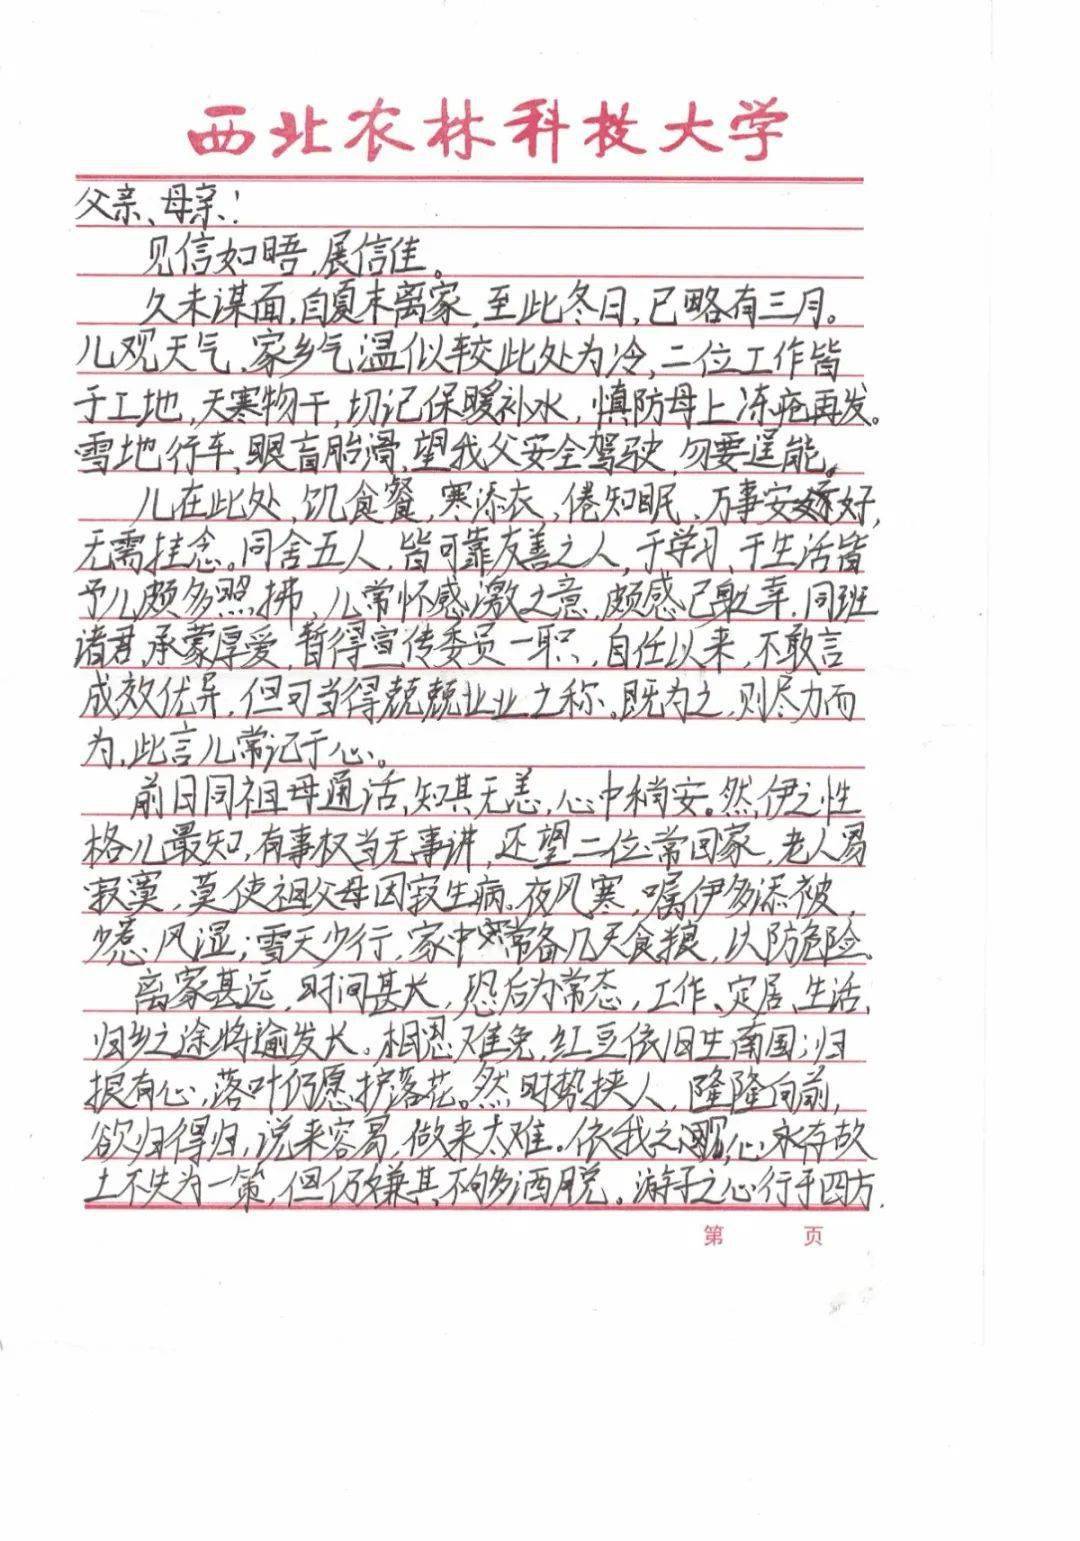 西北农林科技大学
父亲、母亲！
见信如晤，展信佳。
久未谋面，自夏末离家，至此冬日，已略有三月。
儿观天气，家乡气温似较此处为冷，二位工作皆
于工地，天寒物干，切记保暖补水，慎防母上冻疮再发。
雪地行车，眼盲胎滑，望我父安全驾驶，勿要逞能。
儿在此处，饥食餐，寒添衣，倦知眠，万事安好，
无需挂念。同舍五人，皆可靠友善之人，于学习、于生活皆
予儿颇多照拂，儿常怀感激之意，颇感己身之幸，同班
诸君，承蒙厚爱，暂得宣传委员一职，自任以来，不敢言
成效优异，但可当得兢兢业业之称。既为之，则尽力而
为，此言儿常记于心。
前日同祖母通话，知其无恙，心中稍安。然，伊之性
格儿最知，有事权当无事讲，还望二位常回家，老人易
寂寞，莫使祖父母因寂生病。夜风寒，嘱伊多添被，
少惹风湿；雪天少行，家中常备几天食粮，以防危险。
离家甚远，时间甚长，恐后为常态，工作、定居、生活，
归乡之途将逾发长。相思难免，红豆依旧生南国；归
根有心，落叶仍愿护落花。然时势挟人，隆隆向前，
欲归得归，说来容易，做来太难。依我之见，心永存故
土不失为一策，但仍嫌其不够多洒脱。游子之心行于四方，
第 页